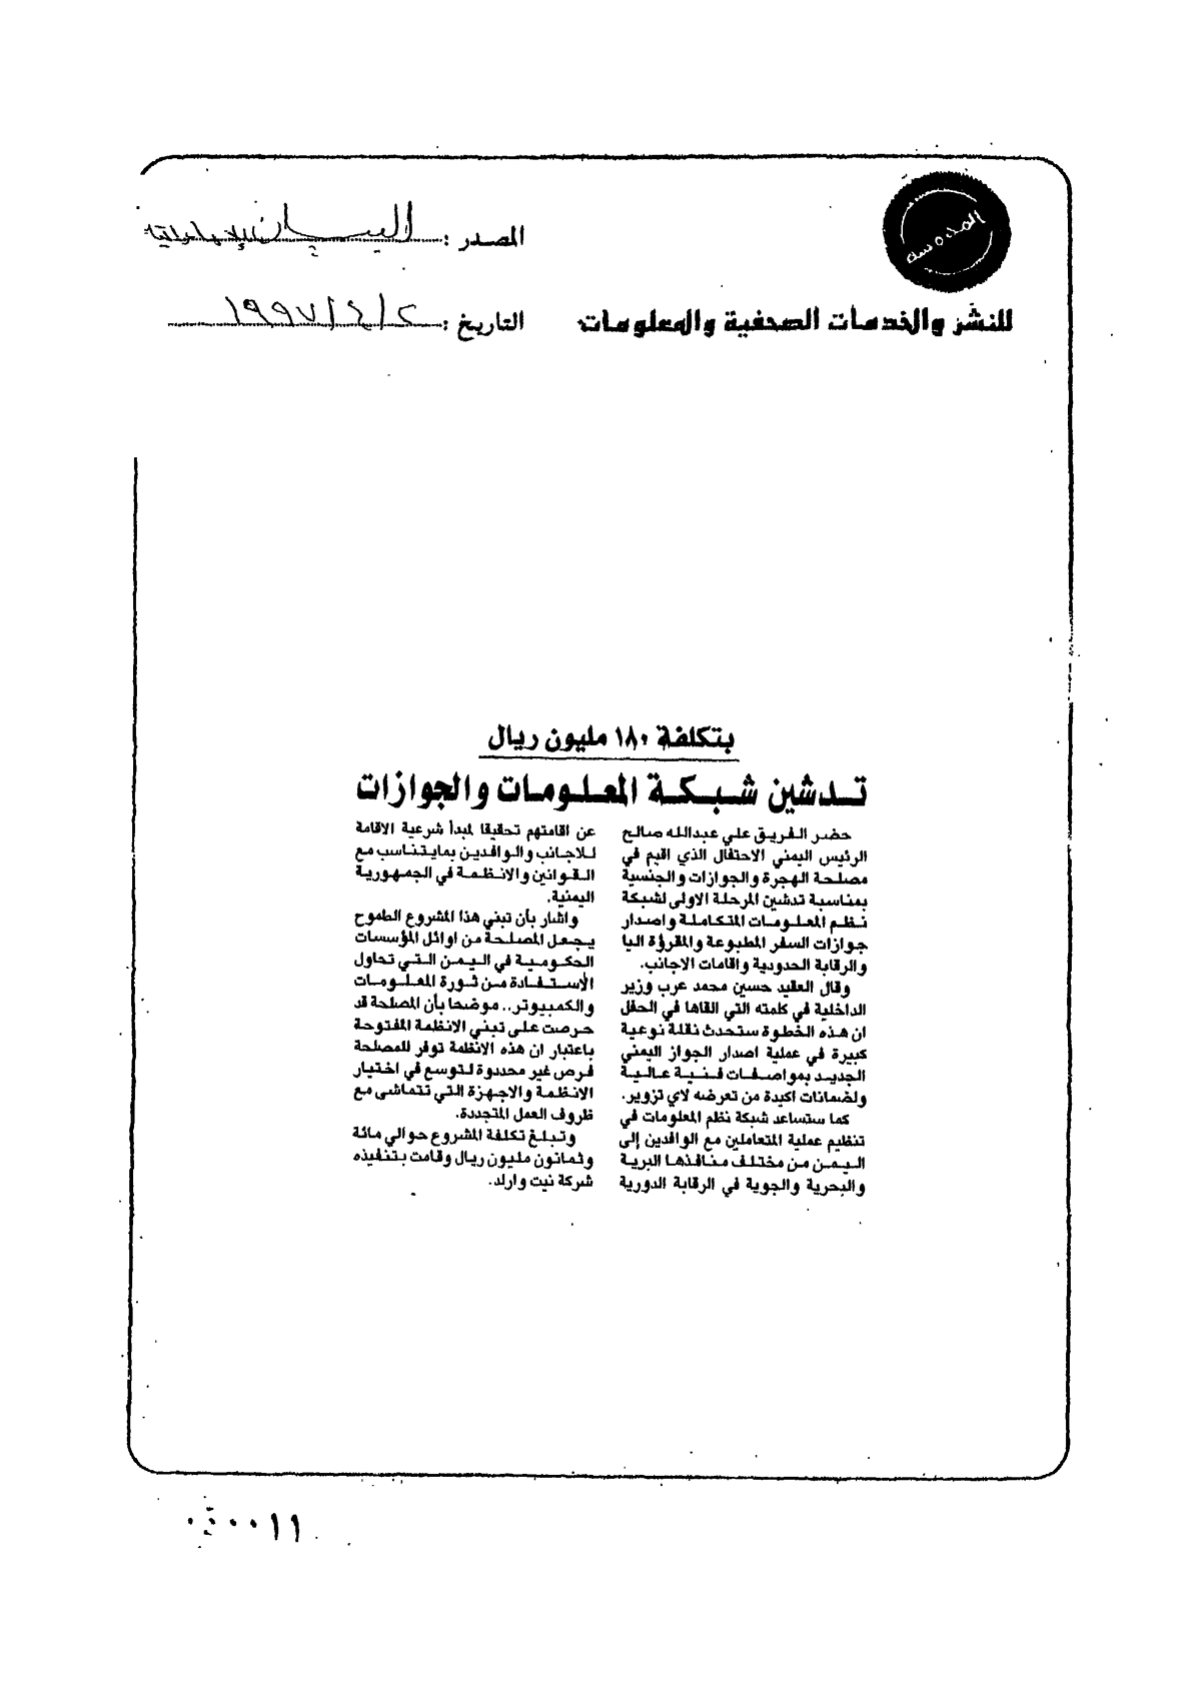 المصدر : البيان الإماراتية
للنشر والخدمات الصحفية والمعلومات
التاريخ : ٢/٤/١٩٩٧
بتكلفة ١٨٠ مليون ريال
تدشين شبكة المعلومات والجوازات
حضر الفريق علي عبدالله صالح
الرئيس اليمني الاحتفال الذي اقيم في
مصلحة الهجرة والجوازات والجنسية
بمناسبة تدشين المرحلة الاولى لشبكة
نظم المعلومات المتكاملة واصدار
جوازات السفر المطبوعة والمقرؤة اليا
والرقابة الحدودية واقامات الاجانب.
وقال العقيد حسين محمد عرب وزير
الداخلية في كلمته التي القاها في الحفل
ان هذه الخطوة ستحدث نقلة نوعية
كبيرة في عملية اصدار الجواز اليمني
الجديد بمواصفات فنية عالية
ولضمانات اكيدة من تعرضه لاي تزوير.
كما ستساعد شبكة نظم المعلومات في
تنظيم عملية المتعاملين مع الوافدين إلى
اليمن من مختلف منافذها البرية
والبحرية والجوية في الرقابة الدورية
عن اقامتهم تحقيقا لمبدأ شرعية الاقامة
للاجانب والوافدين بمايتناسب مع
القوانين والانظمة في الجمهورية
اليمنية.
واشار بأن تبني هذا المشروع الطموح
يجعل المصلحة من اوائل المؤسسات
الحكومية في اليمن التي تحاول
الأستفادة من ثورة المعلومات
والكمبيوتر.. موضحا بأن المصلحة قد
حرصت على تبني الانظمة المفتوحة
باعتبار ان هذه الانظمة توفر للمصلحة
فرص غير محدودة لتوسع في اختيار
الانظمة والاجهزة التي تتماشى مع
ظروف العمل المتجددة.
وتبلغ تكلفة المشروع حوالي مائة
وثمانون مليون ريال وقامت بتنفيذه
شركة نيت وارلد.